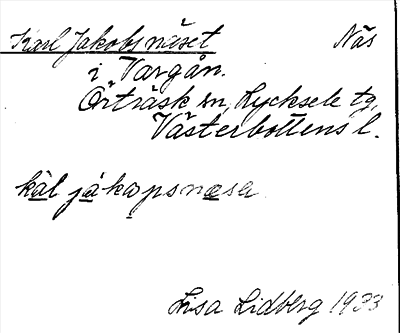 Karl Jakobsnäset Näs
i Vargån.
Örträsk sn, Lycksele tg,
Västerbottens l.
kal jakapsnæsa
Lisa Lidberg 1933